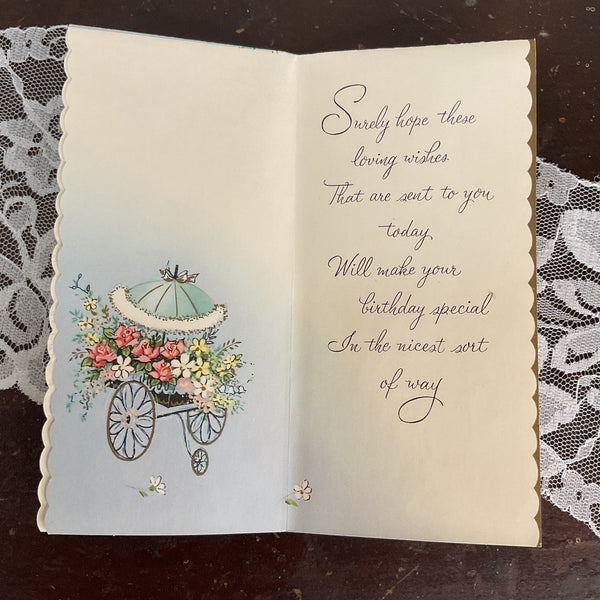 Surely hope these
loving wishes
That are sent to you
today
Will make your
birthday special
In the nicest sort
of way